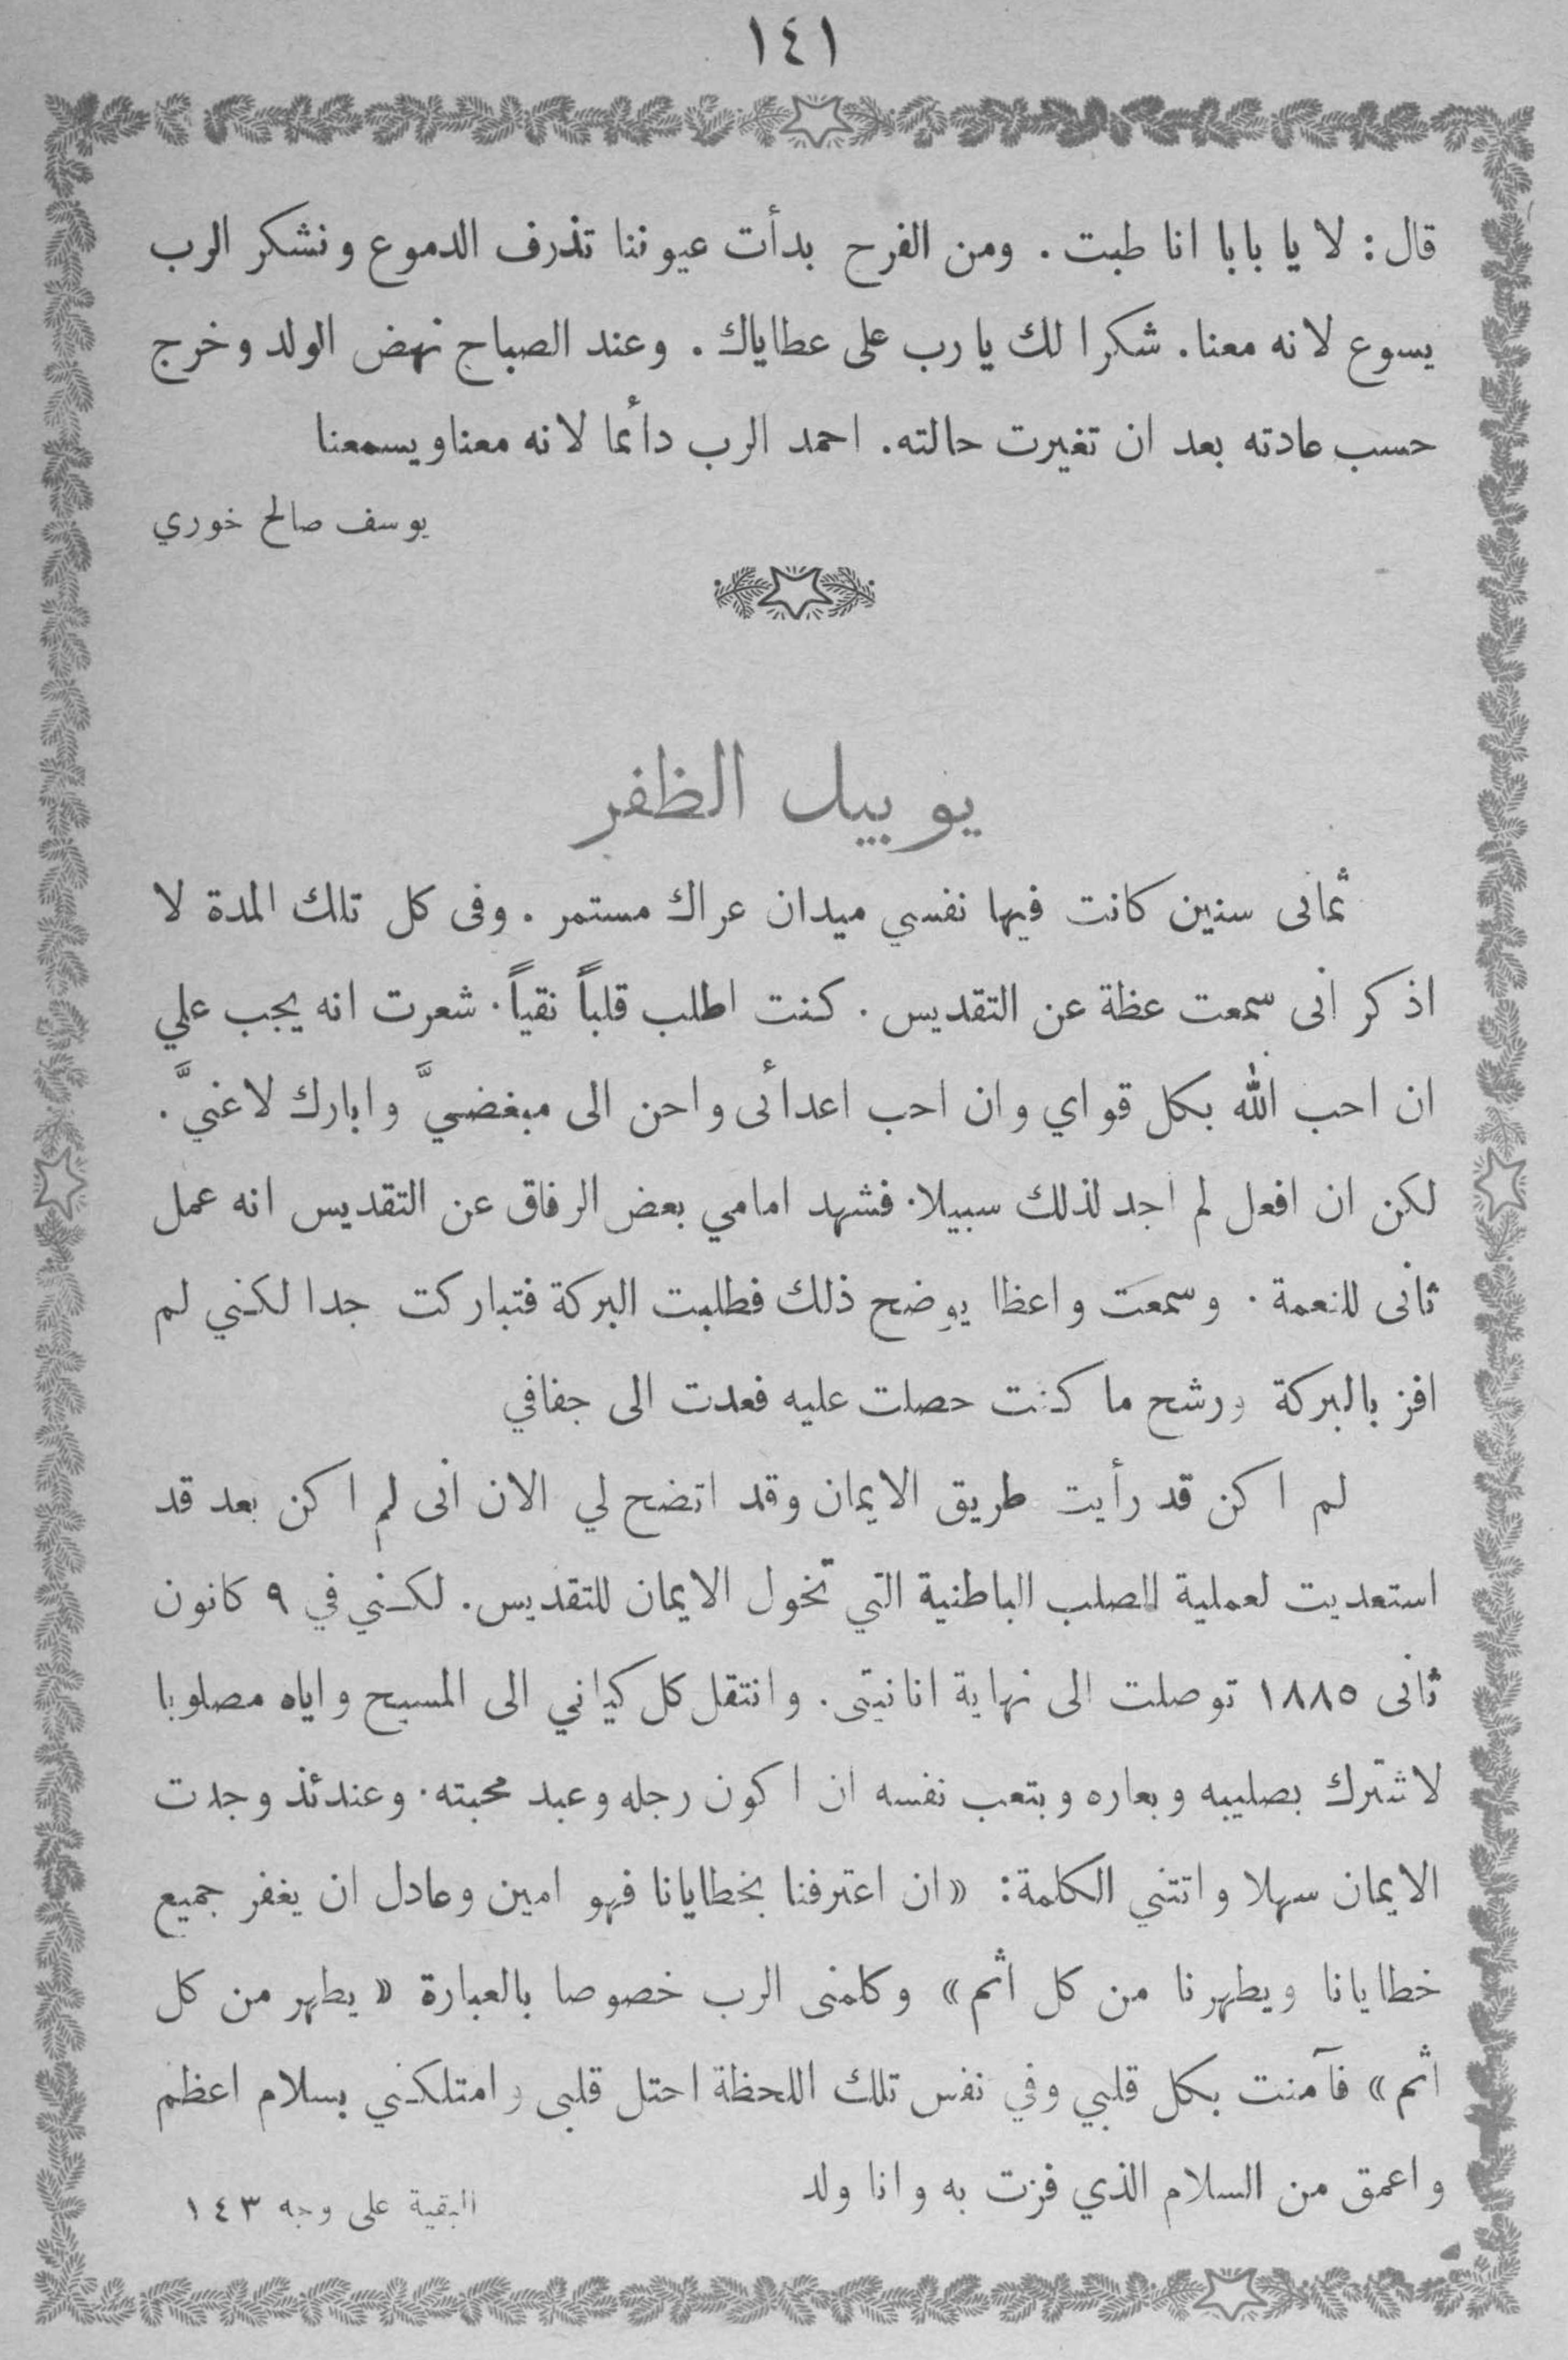 ١٤١
قال: لا يا بابا انا طبت. ومن الفرح بدأت عيوننا تذرف الدموع ونشكر الرب
يسوع لانه معنا. شكرا لك يا رب على عطاياك. وعند الصباح نهض الولد وخرج
حسب عادته بعد ان تغيرت حالته. احمد الرب دائما لانه معنا ويسمعنا
يوسف صالح خوري
يوبيل الظفر
ثمانى سنين كانت فيها نفسي ميدان عراك مستمر. وفى كل تلك المدة لا
اذكر انى سمعت عظة عن التقديس. كنت اطلب قلباً نقياً. شعرت انه يجب علي
ان احب الله بكل قواي وان احب اعدائى واحن الى مبغضيَّ وابارك لاعنيَّ.
لكن ان افعل لم اجد لذلك سبيلا. فشهد امامي بعض الرفاق عن التقديس انه عمل
ثانى للنعمة. وسمعت واعظا يوضح ذلك فطلبت البركة فتباركت جدا لكنني لم
افز بالبركة ورشح ما كنت حصلت عليه فعدت الى جفافي
لم اكن قد رأيت طريق الايمان وقد اتضح لي الان انى لم اكن بعد قد
استعديت لعملية الصلب الباطنية التي تخول الايمان للتقديس. لكنني في ٩ كانون
ثانى ١٨٨٥ توصلت الى نهاية انانيتى. وانتقل كل كياني الى المسيح واياه مصلوبا
لاشترك بصليبه وبعاره وبتعب نفسه ان اكون رجله وعبد محبته. وعندئذ وجدت
الايمان سهلا واتتني الكلمة: «ان اعترفنا بخطايانا فهو امين وعادل ان يغفر جميع
خطايانا ويطهرنا من كل اثم» وكلمنى الرب خصوصا بالعبارة «يطهر من كل
اثم» فآمنت بكل قلبي وفي نفس تلك اللحظة احتل قلبى وامتلكني بسلام اعظم
واعمق من السلام الذي فزت به وانا ولد
البقية على وجه ١٤٣